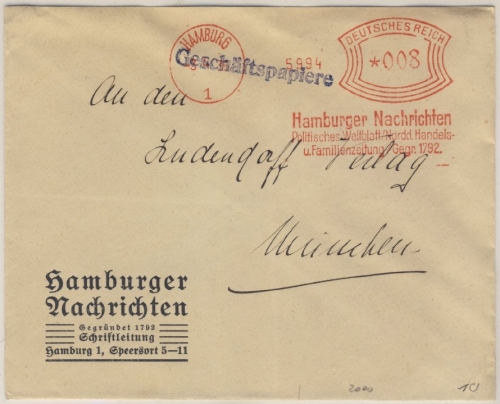 HAMBURG
1
Geschäftspapiere
5.9.94
DEUTSCHES REICH
*008
Hamburger Nachrichten
Politisches Weltblatt Nordd. Handels-
u. Familienzeitung Gegr. 1792.
An den
Ludendorff Verlag
München
Hamburger
Nachrichten
Gegründet 1792
Schriftleitung
Hamburg 1, Speersort 5—11
2000